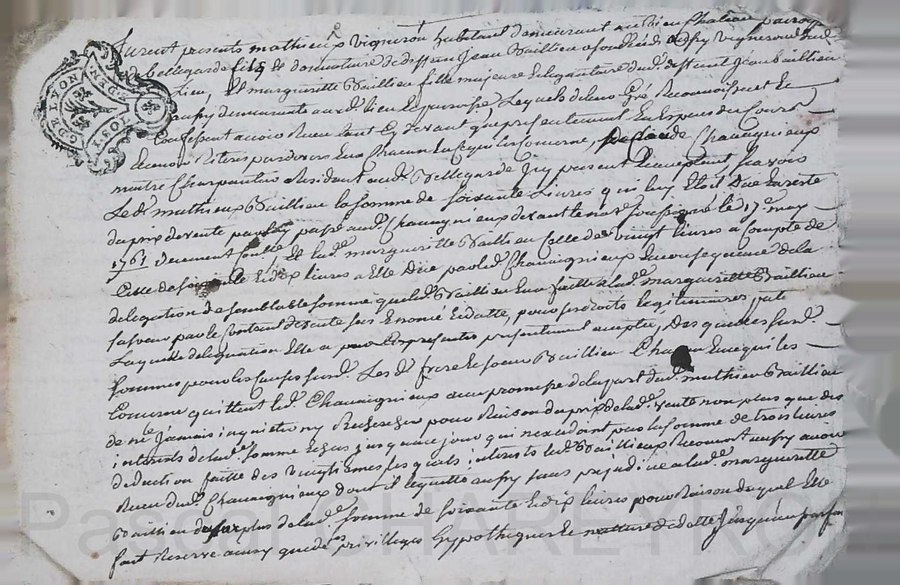 furent presents mathieux vigneron habitant demeurant
de bellegarde fils et donnataire de deffun Jean Baillieu
lieu, et marguerite Baillieu fille majeure et legataire du d. deffunt Jean baillieu
aussy demeurante au d. lieu et parroisse, Lesquels de leur Gré Reconnoissent et
Confessent avoir Reçu tant Cy devant que presentement En Especes du Cours
chacun En Ce qui les Concerne, de Claude Chauvignieux
maitre Charpentier Residant aud. Bellegarde Icy present acceptant Sçavoir
Le d. mathieux Baillieu la somme de soixante livres qui luy Etoit Due En reste
du prix de vente par luy passé aud. Chauvignieux devant le nore. soussigné le 17e may
1761 duement Et lad. marguerite Baillieu Celle de vingt livres a Compte de
Celle de soixante Et dix livres a Elle Düe par led. Chauvignieux En consequance de la
delegation de semblable somme que led. Baillieu En a faitte a lad. marguerite Baillieu
sa soeur par le sus de vente sus Enoncé Et datté, pour ses droits legitimaires
Laquelle delegation Elle a par Ces presentes presentement acceptée, Desquelles susd.
sommes pour les Causes susd. Les d. frere et soeur Baillieu Chacun En ce qui les
Concerne quittent led. Chauvignieux avec promesse de la part dud. mathieu Baillieu
de ne le Jamais inquietter ny Rechercher pour Raison du prix de lad. vente non plus que des
interets de lad. somme Echus jusqua ce jour qui n'excedent pas la somme de trois livres
deduction faitte des vingtiemes lesquels interets led. Baillieux Reconnoit aussy avoir
Reçu dud. Chauvignieux dont il le quitte aussy sans prejudice a lad. marguerite
Baillieu du surplus de lad. somme de soixante Et dix livres pour Raison duquel Elle
fait Reserve aussy que de ses privilleges hypotheques Et nature de dette Jusqu'au parfait
LYON
Pascal CHAREYRON